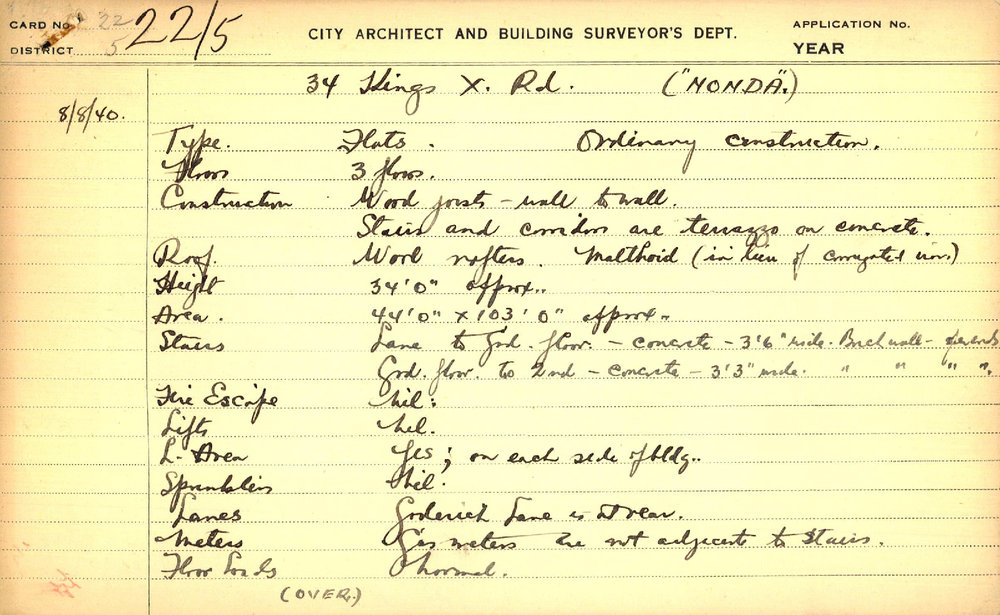 CARD No. 22/5
CITY ARCHITECT AND BUILDING SURVEYOR'S DEPT.
APPLICATION No.
DISTRICT
YEAR
34 Kings X. Rd. ("NONDA".)
8/8/40.
Type. Flats. Ordinary construction.
Floors 3 floors.
Construction Wood joists - wall to wall.
Stairs and corridors are terrazzo on concrete.
Roof. Wood rafters. Malthoid (in lieu of corrugated iron.)
Height 34'0" approx..
Area. 44'0" x 103'0" approx..
Stairs Lane to Grd. floor. - concrete - 3'6" wide. Brick wall -
Grd. floor. to 2nd - concrete - 3'3" wide. " " " ".
Fire Escape Nil.
Lifts Nil.
L. Area Yes; on each side of bldg..
Sprinklers Nil.
Lanes Goderich Lane is at rear.
Meters Gas meters are not adjacent to Stairs.
Floor Loads Normal.
(OVER.)